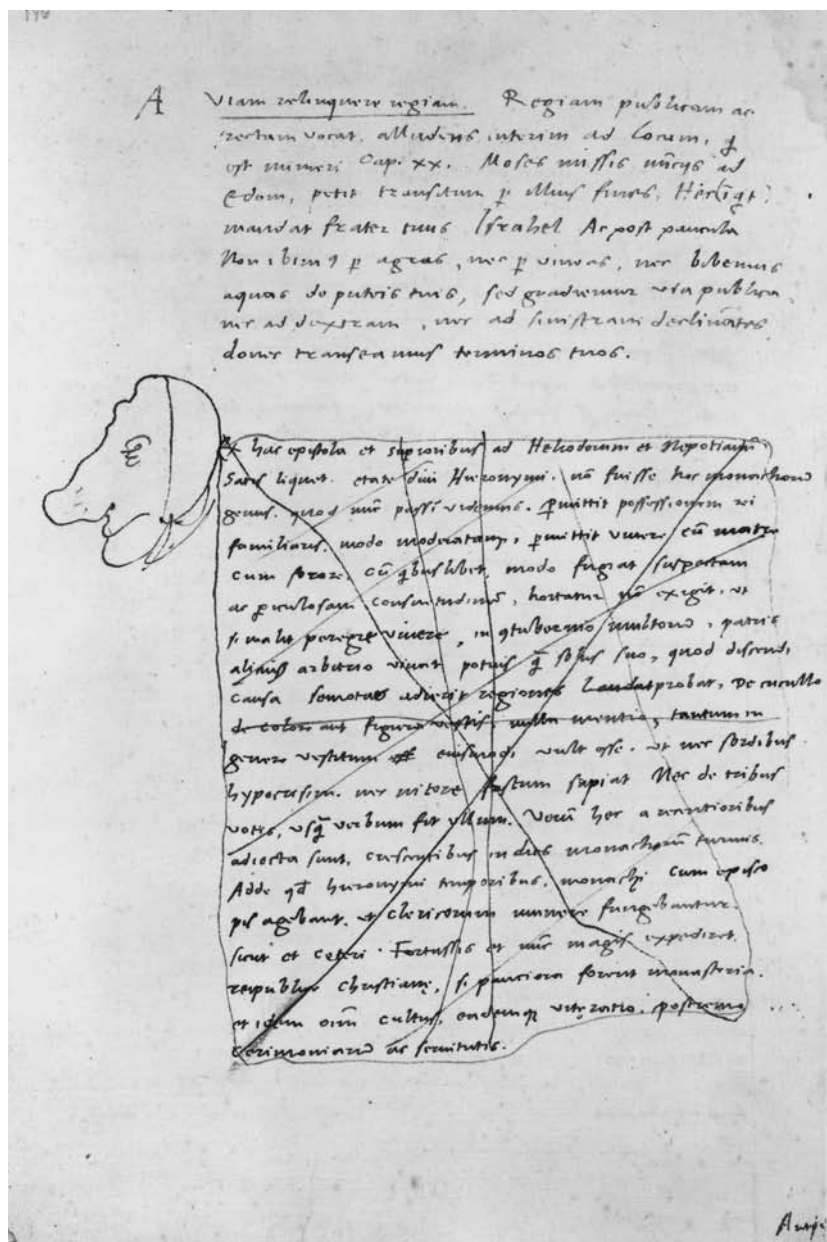 196
A Viam relinquere regiam. Regiam publicam ac
rectam vocat, alludens interim ad Locum, q̄
est numeri Cap. xx. Moses missis nūcijs ad
Edom, petit transitum p̄ illius fines, Hec inq̄t
mandat frater tuus Israhel Ac post paucula
Non ibim9 p̄ agros, nec p̄ vineas, nec bibemus
aquas de puteis tuis, sed gradiemur via publica,
nec ad dextram, nec ad sinistram declinātes
donec transeamus terminos tuos.
Ex hac epistola et superioribus ad Heliodorum et Nepotianū,
Satis liquet, etate diui Hieronymi, nō fuisse hoc monachorū
genus, quod nūc passī videmus. p̄mittit possessionem rei
familiaris, modo moderatam, p̄mittit vivere cū matre
cum sorore, cū q̄buslibet, modo fugiat suspectam
ac p̄iculosam consuetudinē, hortatur nō exigit, ut
si malit peregre vivere, in 9tubernio multorū, patris
alicuius arbitrio vivat potius q̄ solus suo, quod discendi
causa semotas adierit regiones Laudat probat, De cucullo
de colore aut figura vestis nulla mentio, tantum in
genere vestitum eiusmodi vult esse, ut nec sordibus
hypocrisim, nec nitore fastum sapiat Nec de tribus
votis, usq̄ verbum fit ullum. Verū hec a recentioribus
adiecta sunt, crescentibus in dies monachorum turmis.
Adde qd hieronymi temporibus, monachi cum episco
pis agebant, et clericorum munere fungebantur.
sicut et ceteri. Fortassis et nūc magis expediret
reipublice christiane, si pauciora forent monasteria,
et idem oīm cultus, eademque vitę ratio, postremo
Cerimoniarū ac servitutis.